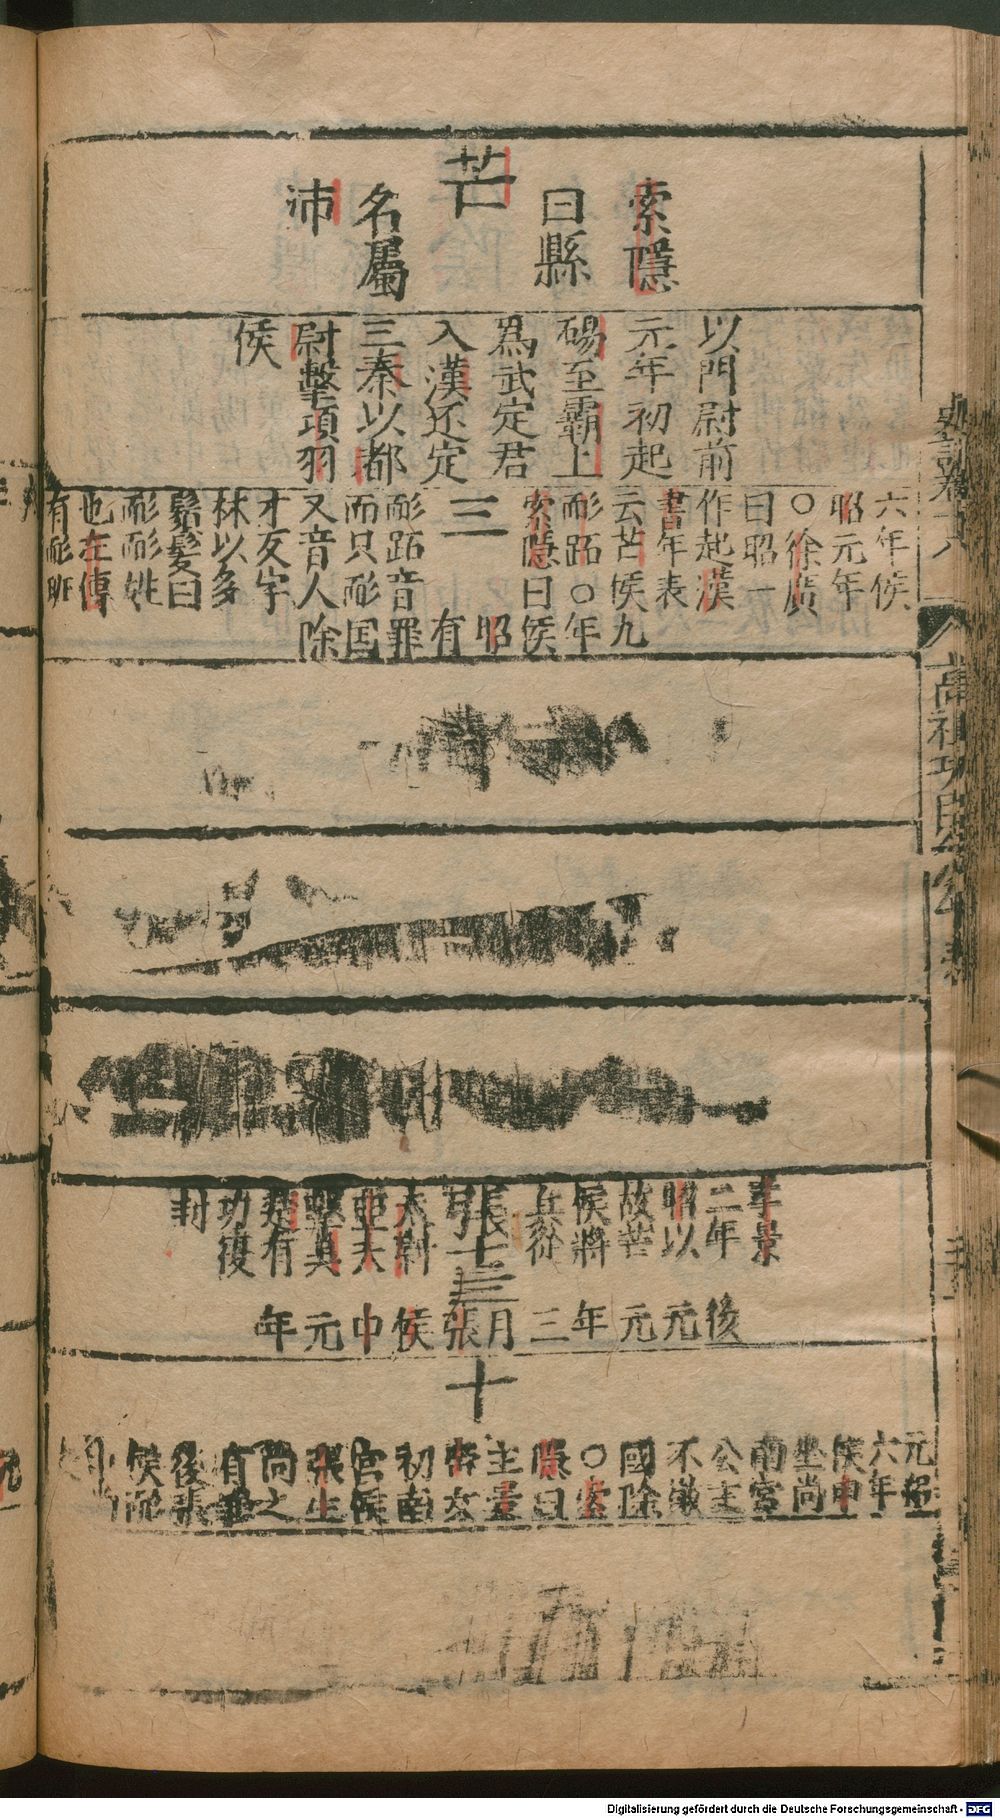 索隱
曰縣
芒
名屬
沛
以門尉前
元年初起
碭至霸上
爲武定君
入漢還定
三秦以都
尉擊項羽
侯
六年侯
昭元年
○徐廣
曰昭一
作起漢
書年表
云芒侯九
耏跖○年
索隱曰侯
三
昭
有
耏跖音罪
而只耏国
又音人除
才友字
林以多
鬚髮曰
耏耏姓
也左傳
有耏班
孝景
二年
昭以
故芒
侯將
兵從
張
十三
太尉
亞夫
擊
楚有
功復
封
後元元年三月張侯申元年
十
元朔
六年
侯申
坐尚
南宮
公主
不敬
國除
○索
隱曰
主景
帝女
初南
宮侯
張生
尚之
有
後張
侯耏
史記卷十八
高祖功臣
年表
Digitalisierung gefördert durch die Deutsche Forschungsgemeinschaft - DFG